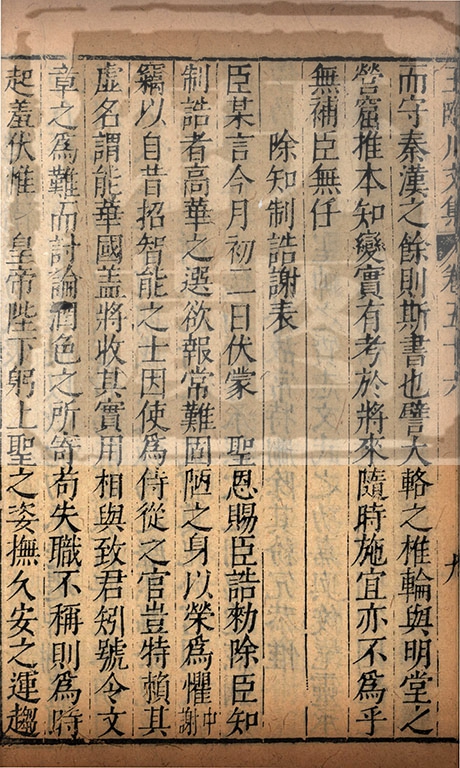 王臨川文集 卷五十六 九
而守秦漢之餘則斯書也譬大輅之椎輪與明堂之
營窟推本知變實有考於將來隨時施宜亦不爲乎
無補臣無任
除知制誥謝表
臣某言今月初二日伏蒙 聖恩賜臣誥勑除臣知
制誥者高華之選欲報常難固陋之身以榮爲懼中謝
竊以自昔招智能之士因使爲侍從之官豈特賴其
虛名謂能華國盖將收其實用相與致君矧號令文
章之爲難而討論潤色之所寄苟失職不稱則爲時
起羞伏惟 皇帝陛下躬上聖之姿撫久安之運趨